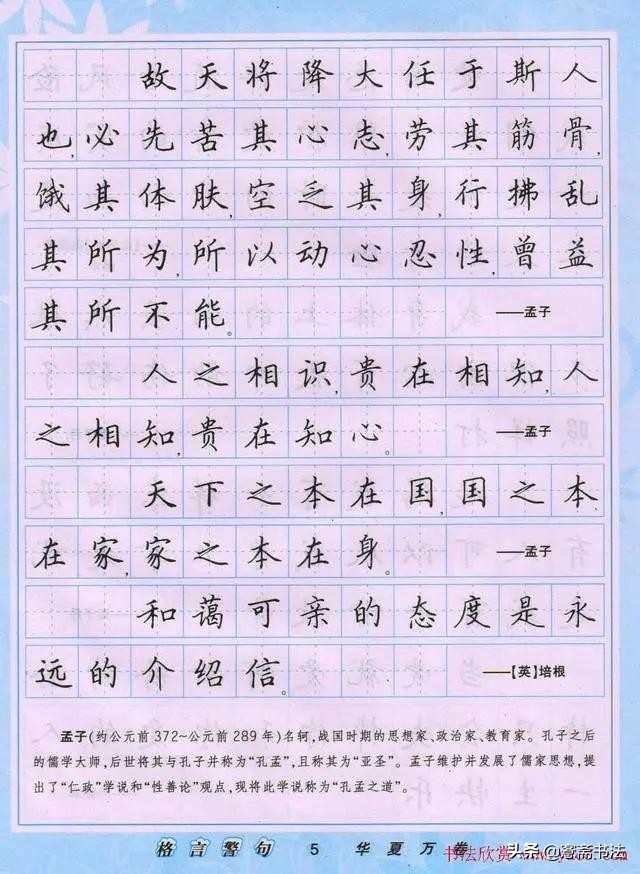 故天将降大任于斯人
也,必先苦其心志,劳其筋骨,
饿其体肤,空乏其身,行拂乱
其所为,所以动心忍性,曾益
其所不能。 ——孟子
人之相识,贵在相知,人
之相知,贵在知心。 ——孟子
天下之本在国,国之本
在家,家之本在身。 ——孟子
和蔼可亲的态度是永
远的介绍信。 ——【英】培根
孟子(约公元前372~公元前289年)名轲,战国时期的思想家、政治家、教育家。孔子之后
的儒学大师,后世将其与孔子并称为“孔孟”,且称其为“亚圣”。孟子维护并发展了儒家思想,提
出了“仁政”学说和“性善论”观点,现将此学说称为“孔孟之道”。
格言警句 5 华夏万卷
书法欣赏
头条 @鸾斋书法